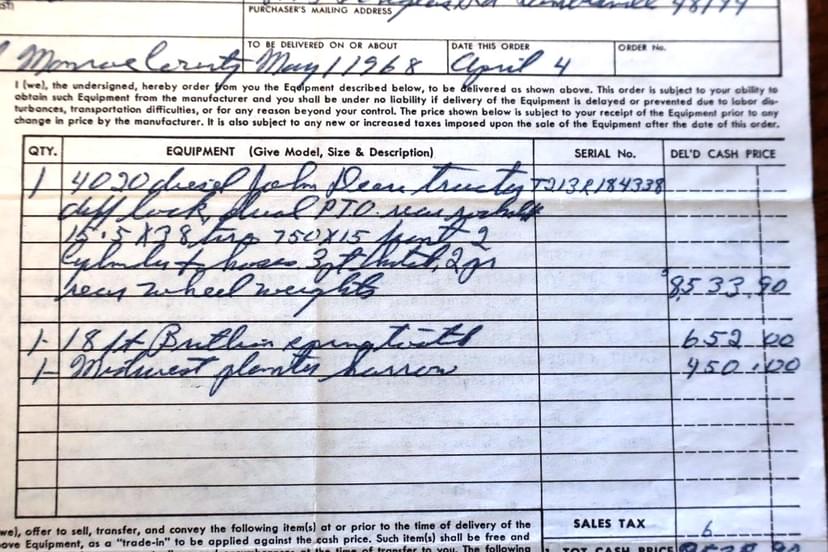 PURCHASER'S MAILING ADDRESS
Monroe County
TO BE DELIVERED ON OR ABOUT
May 1 1968
DATE THIS ORDER
April 4
ORDER No.
I (we), the undersigned, hereby order from you the Equipment described below, to be delivered as shown above. This order is subject to your ability to
obtain such Equipment from the manufacturer and you shall be under no liability if delivery of the Equipment is delayed or prevented due to labor dis-
turbances, transportation difficulties, or for any reason beyond your control. The price shown below is subject to your receipt of the Equipment prior to any
change in price by the manufacturer. It is also subject to any new or increased taxes imposed upon the sale of the Equipment after the date of this order.
QTY. EQUIPMENT (Give Model, Size & Description) SERIAL No. DEL'D CASH PRICE
1 4020 diesel John Deere T213R184338
diff lock, dual PTO. rear
15.5X38 750X15 front 2
hoses 3 pt hitch, 2 pr
rear wheel weights 8533.90
1- 18 ft 652.00
1- Midwest planter harrow 450.00
we), offer to sell, transfer, and convey the following item(s) at or prior to the time of delivery of the
ove Equipment, as a "trade-in" to be applied against the cash price. Such item(s) shall be free and
at the time of transfer to you. The following
SALES TAX 6
1. TOT CASH PRICE